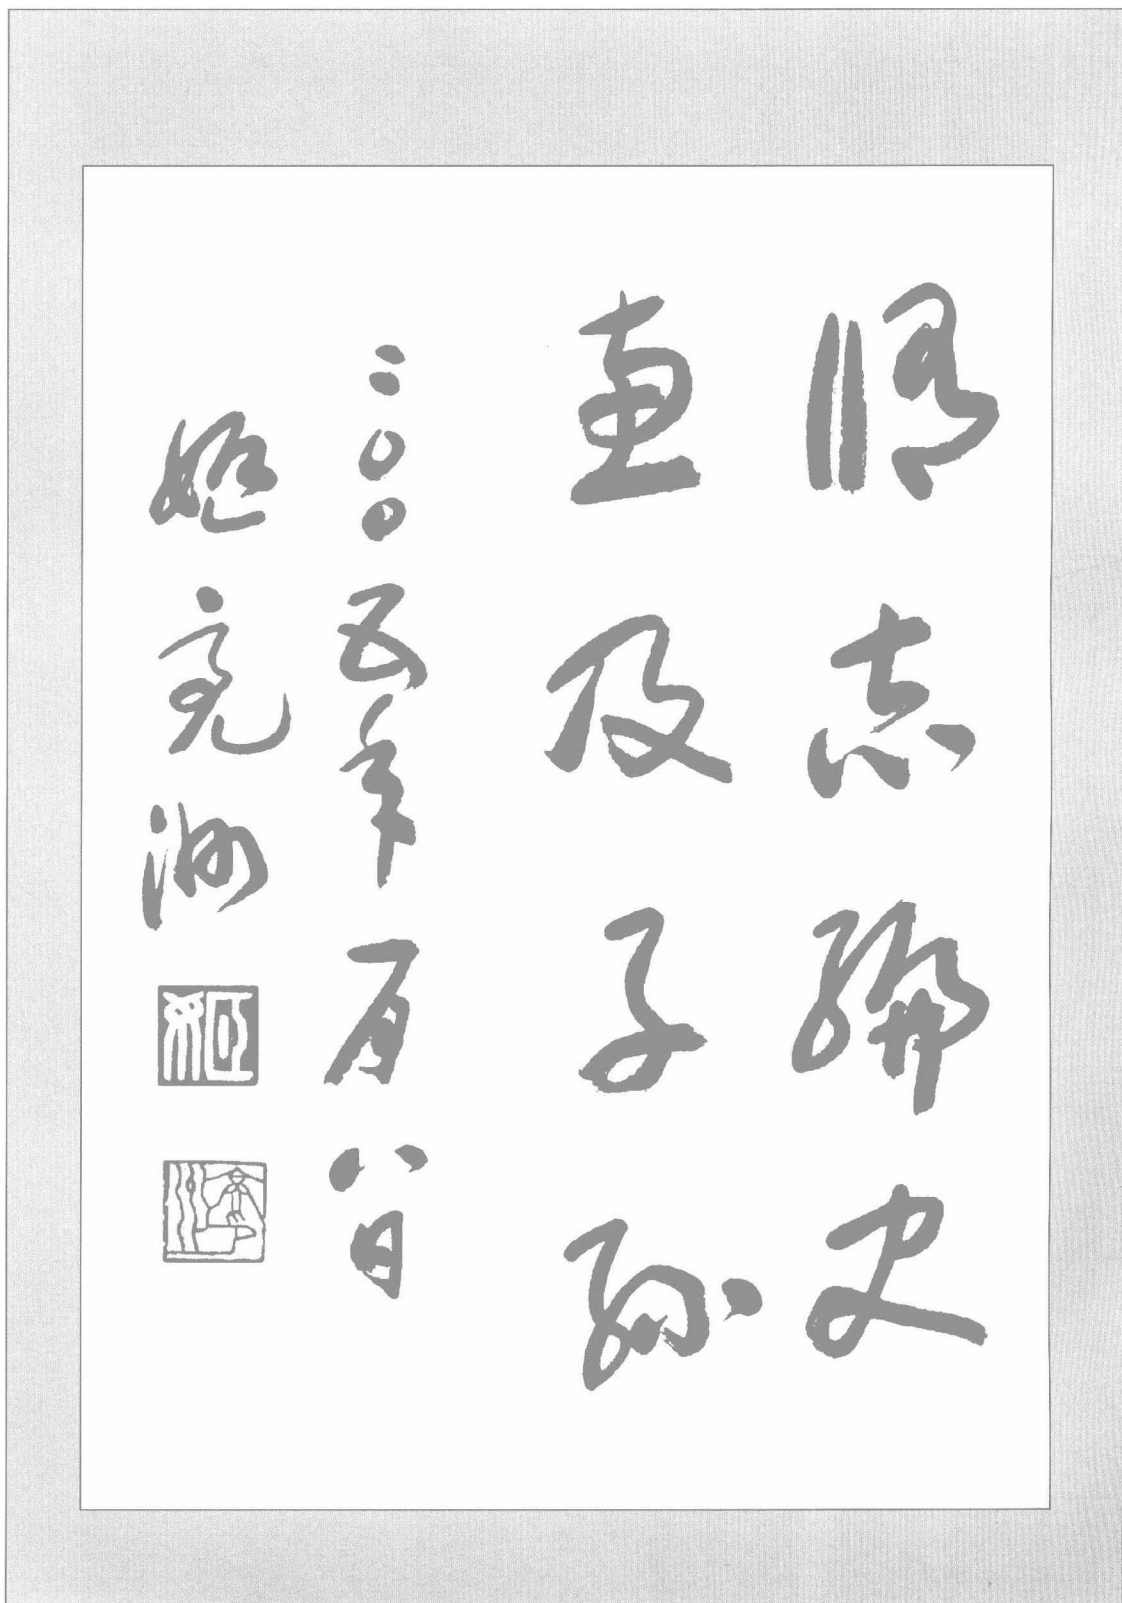 修志编史
惠及子孙
二〇〇五年一月八日
姬亮洲